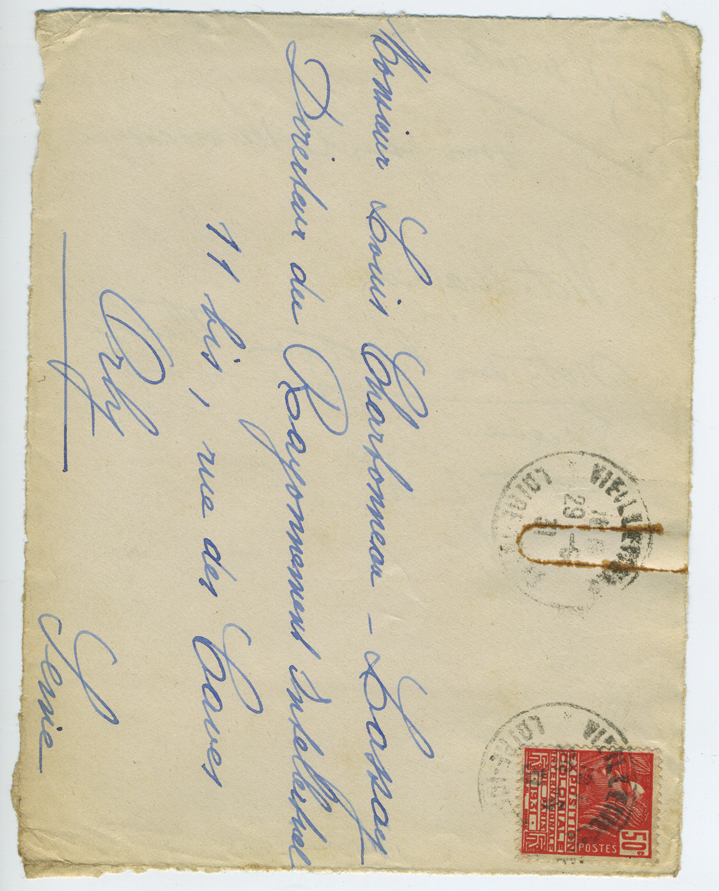 Monsieur Louis Charbonneau-Lassay
Directeur du Rayonnement Intellectuel
11 bis, rue des Caves
Orly
Seine
LOIRE
29
31
EXPOSITION
COLONIALE
INTERNATIONALE
PARIS 1931
POSTES
50c